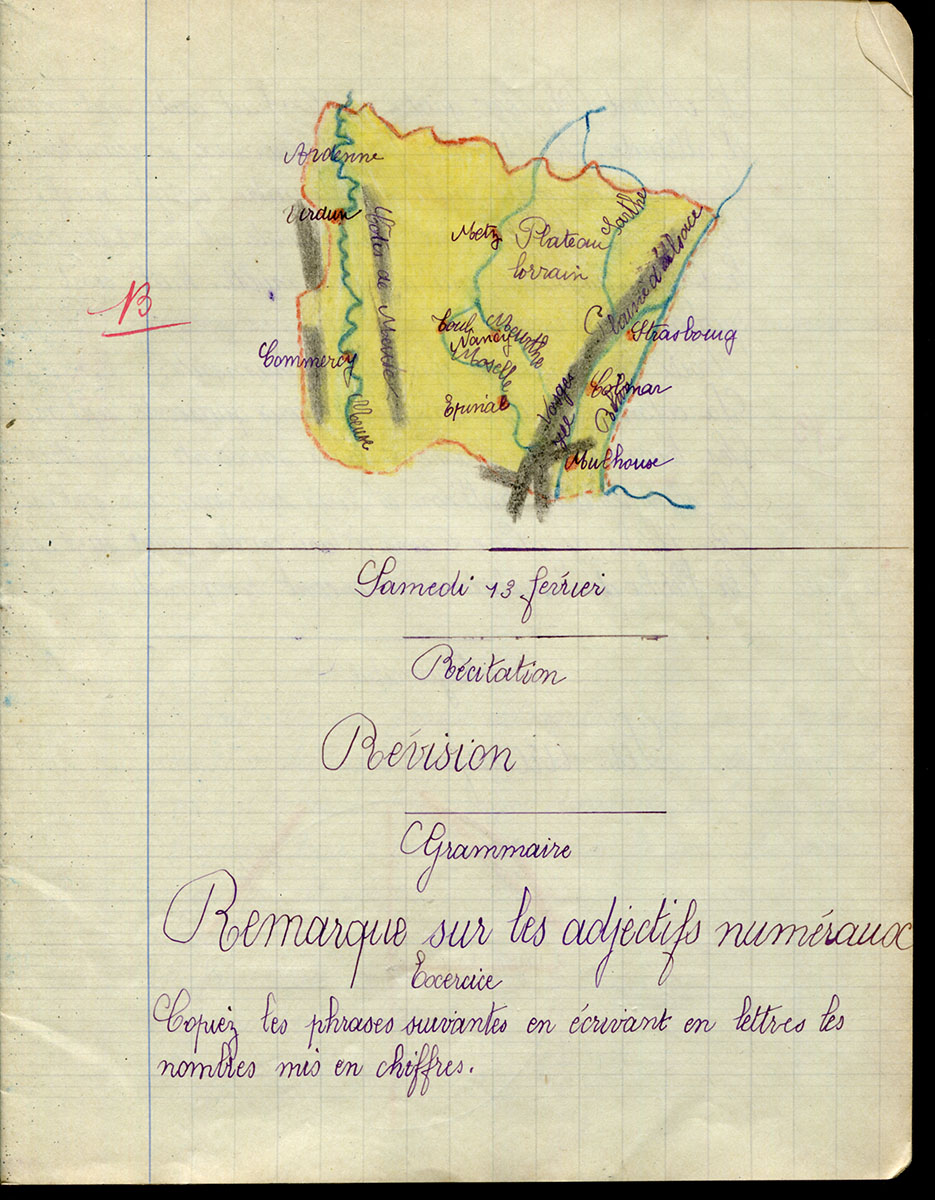 Ardenne
Verdun
Côtes de Meuse
Metz
Plateau
lorrain
Sarthe
Plaine d'Alsace
B
Toul
Nancy
Meurthe
Moselle
Strasbourg
Commercy
Meuse
Epinal
Vosges
Colmar
Mulhouse
Samedi 13 février
Récitation
Révision
Grammaire
Remarque sur les adjectifs numéraux
Exercice
Copiez les phrases suivantes en écrivant en lettres les
nombres mis en chiffres.